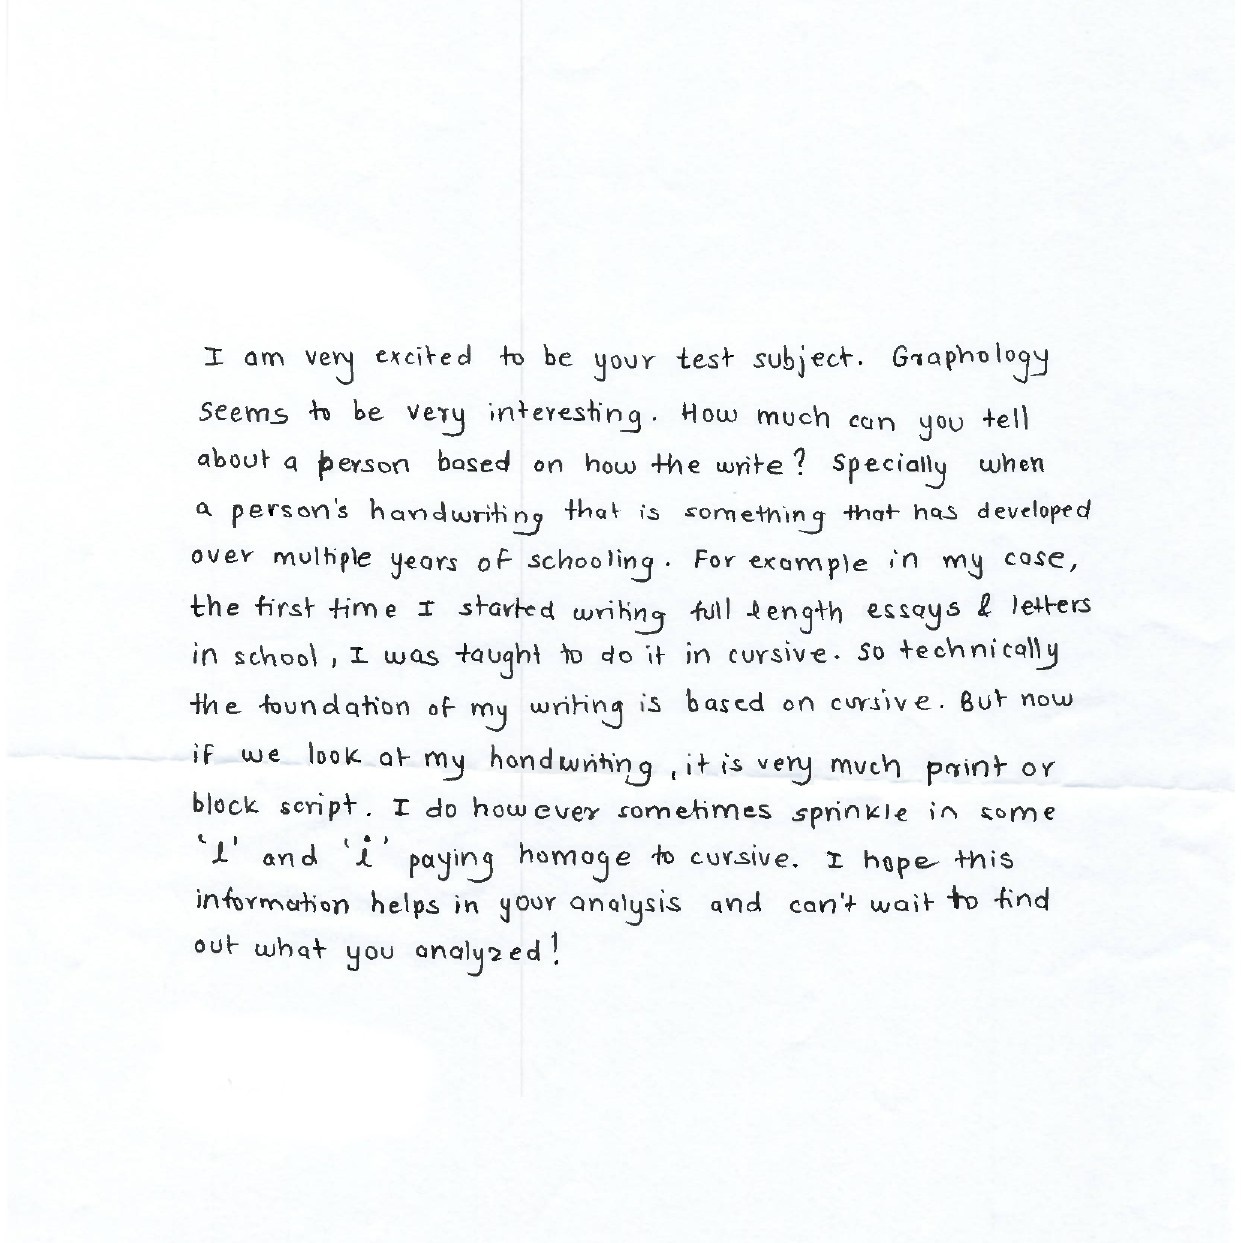 I am very excited to be your test subject. Graphology
seems to be very interesting. How much can you tell
about a person based on how the write? Specially when
a person's handwriting that is something that has developed
over multiple years of schooling. For example in my case,
the first time I started writing full length essays & letters
in school, I was taught to do it in cursive. So technically
the foundation of my writing is based on cursive. But now
if we look at my handwriting, it is very much print or
block script. I do however sometimes sprinkle in some
'l' and 'i' paying homage to cursive. I hope this
information helps in your analysis and can't wait to find
out what you analyzed!